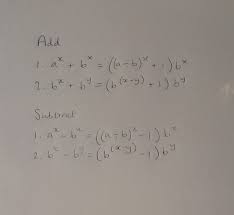 Add
1. a^x + b^x = ((a÷b)^x + 1) b^x
2. b^x + b^y = (b^(x-y) + 1) b^y
Subtract
1. a^x - b^x = ((a÷b)^x - 1) b^x
2. b^x - b^y = (b^(x-y) - 1) b^y